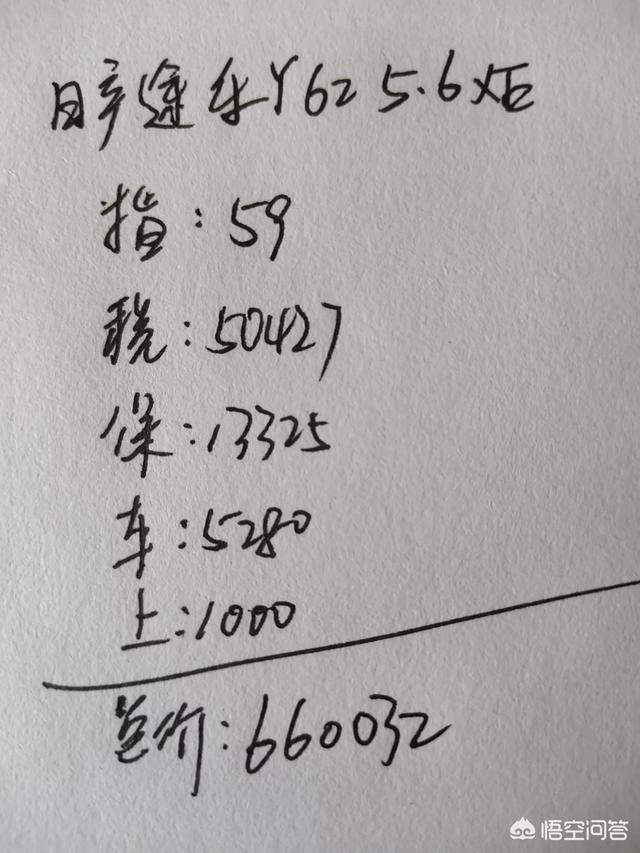 日产途乐Y62 5.6XE
指:59
税:50427
保:13325
车:5280
上:1000
总价:660032
悟空问答